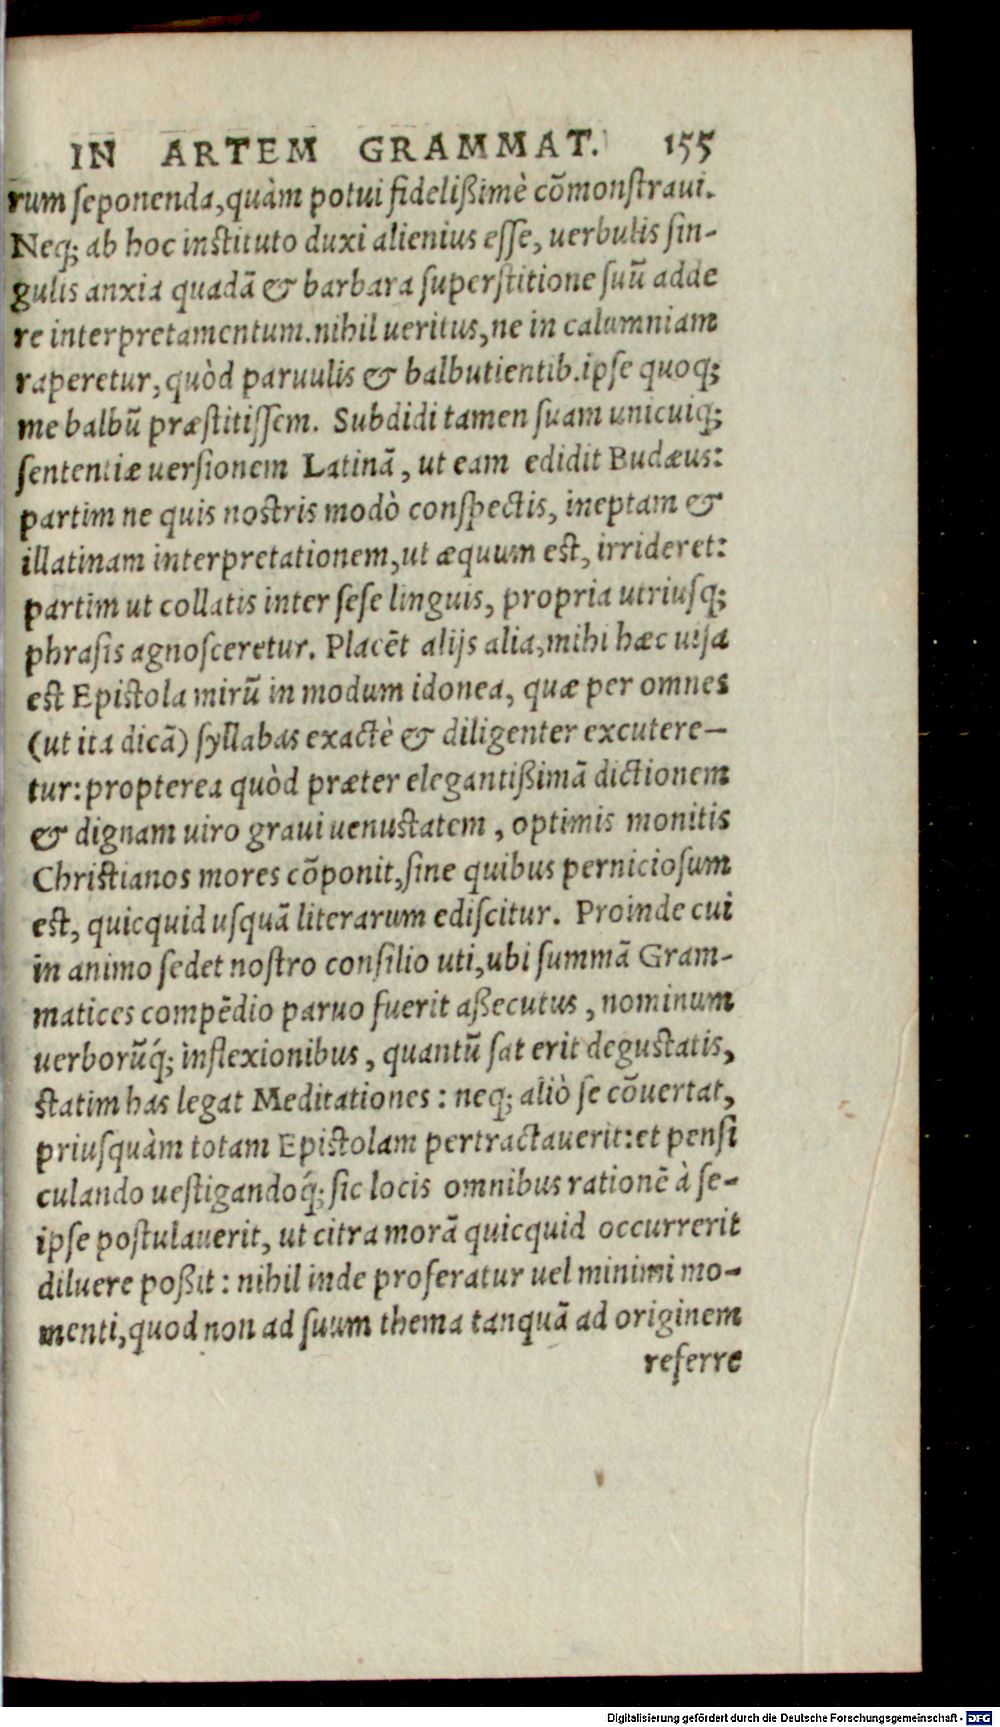 IN ARTEM GRAMMAT. 155
rum ſeponenda, quàm potui fidelißimè cõmonſtraui.
Neq; ab hoc inſtituto duxi alienius eſſe, uerbulis ſin-
gulis anxia quadã & barbara ſuperſtitione ſuũ adde
re interpretamentum. nihil ueritus, ne in calumniam
raperetur, quòd paruulis & balbutientib. ipſe quoq;
me balbũ præſtitiſſem. Subdidi tamen ſuam unicuiq;
ſententiæ uerſionem Latinã, ut eam edidit Budæus:
partim ne quis noſtris modò conſpectis, ineptam &
illatinam interpretationem, ut æquum eſt, irrideret:
partim ut collatis inter ſeſe linguis, propria utriuſq;
phraſis agnoſceretur. Placẽt alijs alia, mihi hæc uiſa
eſt Epiſtola mirũ in modum idonea, quæ per omnes
(ut ita dicã) ſyllabas exactè & diligenter excutere-
tur: propterea quòd præter elegantißimã dictionem
& dignam uiro graui uenuſtatem, optimis monitis
Chriſtianos mores cõponit, ſine quibus pernicioſum
eſt, quicquid uſquã literarum ediſcitur. Proinde cui
in animo ſedet noſtro conſilio uti, ubi ſummã Gram-
matices compẽdio paruo fuerit aßecutus, nominum
uerborũq́; inflexionibus, quantũ ſat erit deguſtatis,
ſtatim has legat Meditationes: neq; aliò ſe cõuertat,
priuſquàm totam Epiſtolam pertractauerit: et penſi
culando ueſtigandoq́; ſic locis omnibus rationẽ à ſe-
ipſe poſtulauerit, ut citra morã quicquid occurrerit
diluere poßit: nihil inde proferatur uel minimi mo-
menti, quod non ad ſuum thema tanquã ad originem
referre
Digitalisierung gefördert durch die Deutsche Forschungsgemeinschaft - DFG